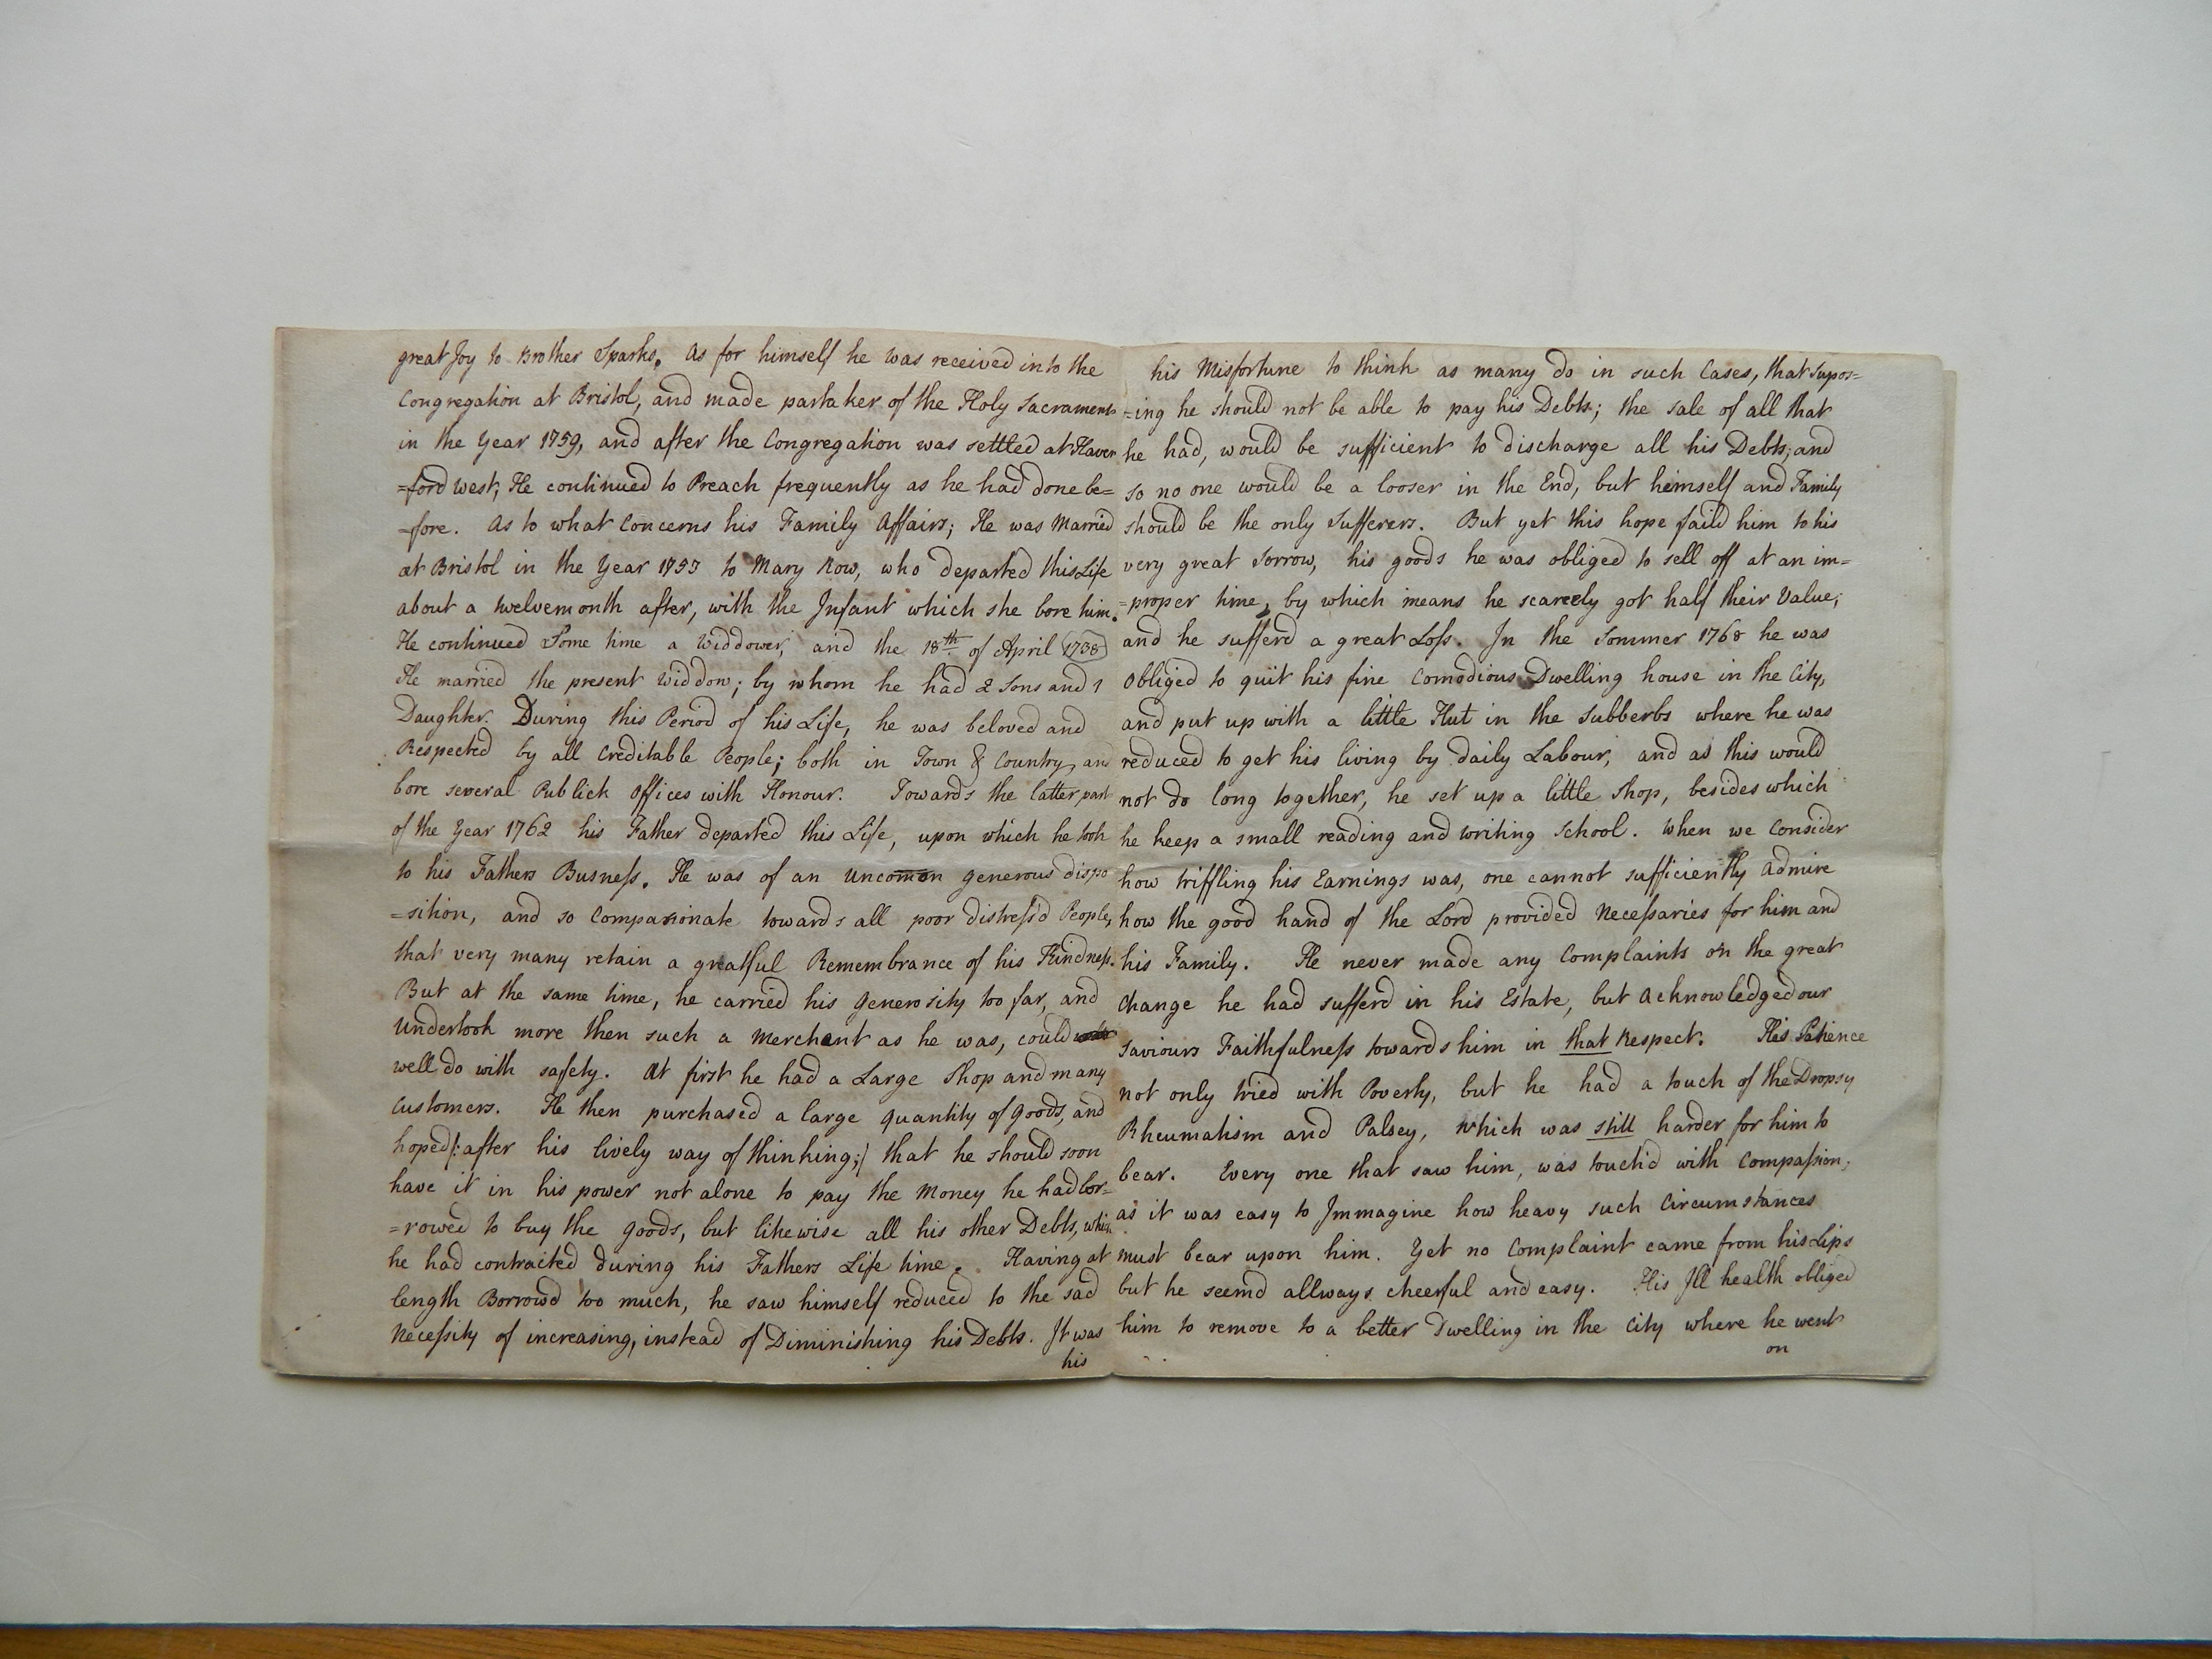 great Joy to Brother Sparks. As for himself he was received into the
Congregation at Bristol, and made partaker of the Holy Sacrament
in the Year 1759, and after the Congregation was settled at Haver
=ford west; He continued to Preach frequently as he had done be=
=fore. As to what Concerns his Family Affairs; He was Married
at Bristol in the Year 1753 to Mary Row, who departed this Life
about a twelvemonth after, with the Infant which she bore him.
He continued Some time a Widdower, and the 18th of April 1738
He married the present Widdow; by whom he had 2 Sons and 1
Daughter. During this Period of his Life, he was beloved and
Respected by all Creditable People; both in Town & Country, and
bore several Publick Offices with Honour. Towards the latter part
of the Year 1762 his Father departed this Life, upon which he took
to his Fathers Busness. He was of an Uncomon generous dispo
=sition, and so Compasionate towards all poor distress'd People,
that very many retain a greatful Remembrance of his Kindness.
But at the same time, he carried his generosity too far, and
Undertook more then such a Merchant as he was, could
well do with safety. At first he had a Large Shop and many
Customers. He then purchased a large quantity of goods, and
hoped /: after his lively way of thinking;/ that he should soon
have it in his power not alone to pay the Money he had bor=
=rowed to buy the goods, but likewise all his other Debts, which
he had contracted during his Fathers Life time. Having at
length Borrow'd too much, he saw himself reduced to the sad
Necessity of increasing, instead of Diminishing his Debts. It was
his
his Misfortune to think as many do in such Cases, that Supos=
=ing he should not be able to pay his Debts; the sale of all that
he had, would be sufficient to discharge all his Debts, and
so no one would be a looser in the End, but himself and Family
should be the only Sufferers. But yet this hope faild him to his
very great Sorrow, his goods he was obliged to sell off at an im=
=proper time, by which means he scarcely got half their Value;
and he sufferd a great Loss. In the Sommer 1768 he was
obliged to quit his fine Comodious Dwelling house in the City,
and put up with a little Hut in the Subberbs where he was
reduced to get his living by daily Labour, and as this would
not do long together, he set up a little Shop, besides which
he keep a small reading and writing School. When we Consider
how triffling his Earnings was, one cannot sufficiently Admire
how the good hand of the Lord provided Necessaries for him and
his Family. He never made any Complaints on the great
Change he had sufferd in his Estate, but Acknowledged our
Saviours Faithfulness towards him in that Respect. His Patience
not only tried with Poverty, but he had a touch of the Dropsy
Rheumatism and Palsey, which was still harder for him to
bear. Every one that saw him, was touch'd with Compassion;
as it was easy to Immagine how heavy such Circumstances
must bear upon him. Yet no Complaint came from his Lips
but he seemd allways cheerful and easy. His Ill health obliged
him to remove to a better Dwelling in the City where he went
on